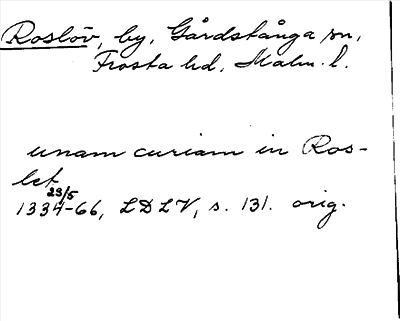 Roslöv, by, Gårdstånga sn,
Frosta hd, Malm. l.
unam curiam in Ros-
let
23/5
1334-66, LDLV, s. 131. orig.